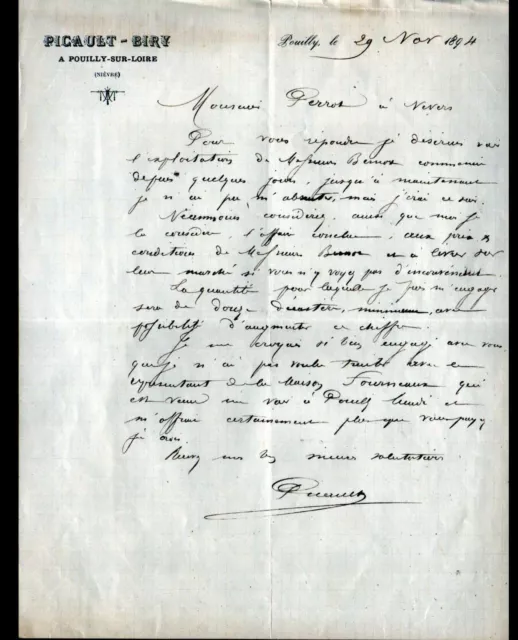 PICAULT - BIRY
A POUILLY-SUR-LOIRE
(NIÈVRE)
Pouilly, le 29 Nov 1894
Monsieur Perrot à Nevers
Pour vous répondre je désirais voir
l'exploitation de Messieurs commencée
depuis quelques jours, jusqu'à maintenant
je n'ai pu m'absenter, mais j'irai ce soir.
Néanmoins considérez, ainsi que moi je
la considère, l'affaire conclue, aux prix &
conditions de Messieurs et à livrer sur
leur marché si vous n'y voyez pas d'inconvénient.
La quantité pour laquelle je puis m'engager
sera de douze décastères, minimum, avec
possibilité d'augmenter ce chiffre.
Je me croyais si bien engagé avec vous
que je n'ai pas voulu traiter avec le
représentant de la Maison Fourneaux qui
est venu me voir à Pouilly lundi et
m'offrait certainement plus que vous payez
je crois.
Recevez mes salutations
Picault